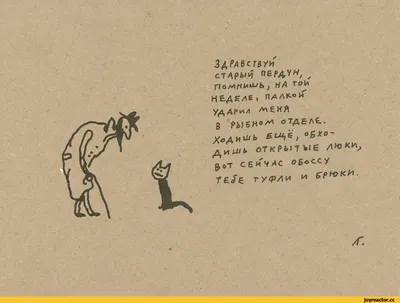 ЗДРАВСТВУЙ
СТАРЫЙ ПЕРДУН,
ПОМНИШЬ, НА ТОЙ
НЕДЕЛЕ, ПАЛКОЙ
УДАРИЛ МЕНЯ
В РЫБНОМ ОТДЕЛЕ.
ХОДИШЬ ЕЩЁ, ОБХО-
ДИШЬ ОТКРЫТЫЕ ЛЮКИ,
ВОТ СЕЙЧАС ОБОССУ
ТЕБЕ ТУФЛИ И БРЮКИ.
Л.
joyreactor.cc